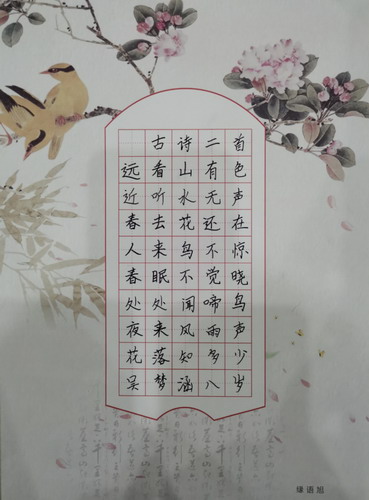 古诗二首
远看山有色
近听水无声
春去花还在
人来鸟不惊
春眠不觉晓
处处闻啼鸟
夜来风雨声
花落知多少
吴梦涵八岁
缘语旭